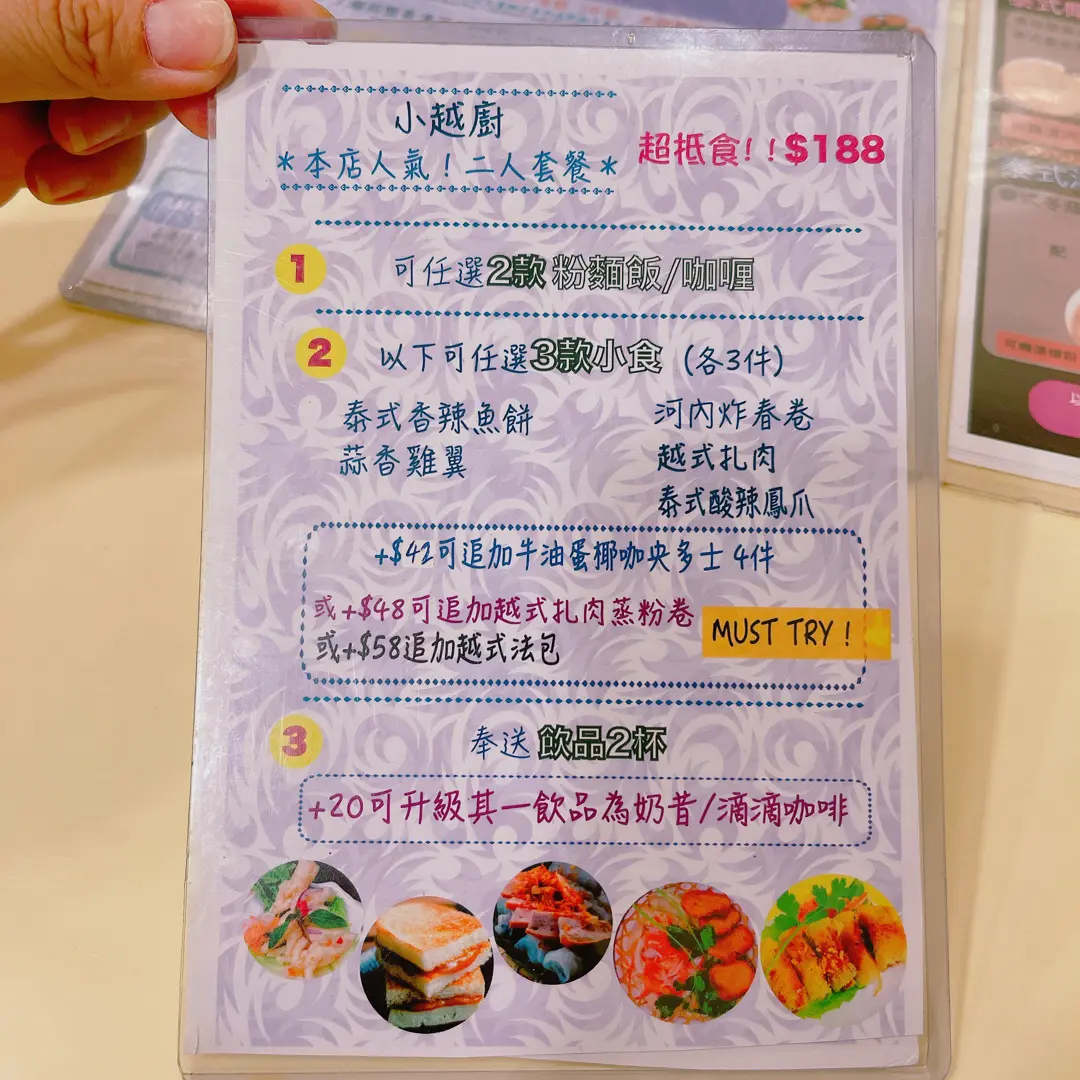 小越廚
*本店人氣！二人套餐*
超抵食!!$188
1 可任選2款粉麵飯/咖喱
2 以下可任選3款小食 (各3件)
泰式香辣魚餅
河內炸春卷
蒜香雞翼
越式扎肉
泰式酸辣鳳爪
+$42可追加牛油蛋椰咖央多士 4件
或+$48可追加越式扎肉蒸粉卷
或+$58追加越式法包
MUST TRY !
3 奉送 飲品2杯
+20可升級其一飲品為奶昔/滴滴咖啡
配